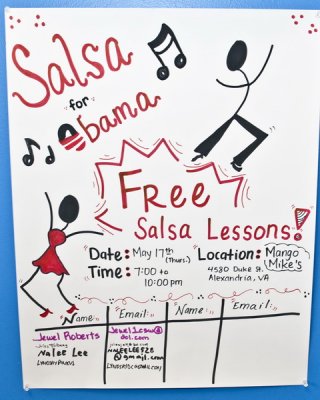 Salsa
for
Obama
FREE
Salsa Lessons!
Date: May 17th (Thurs.)
Time: 7:00 to 10:00 pm
Location: Mango Mike's
4580 Duke St.
Alexandria, VA
Name Email Name Email
Jewel Roberts
Nalee Lee
@gmail.com